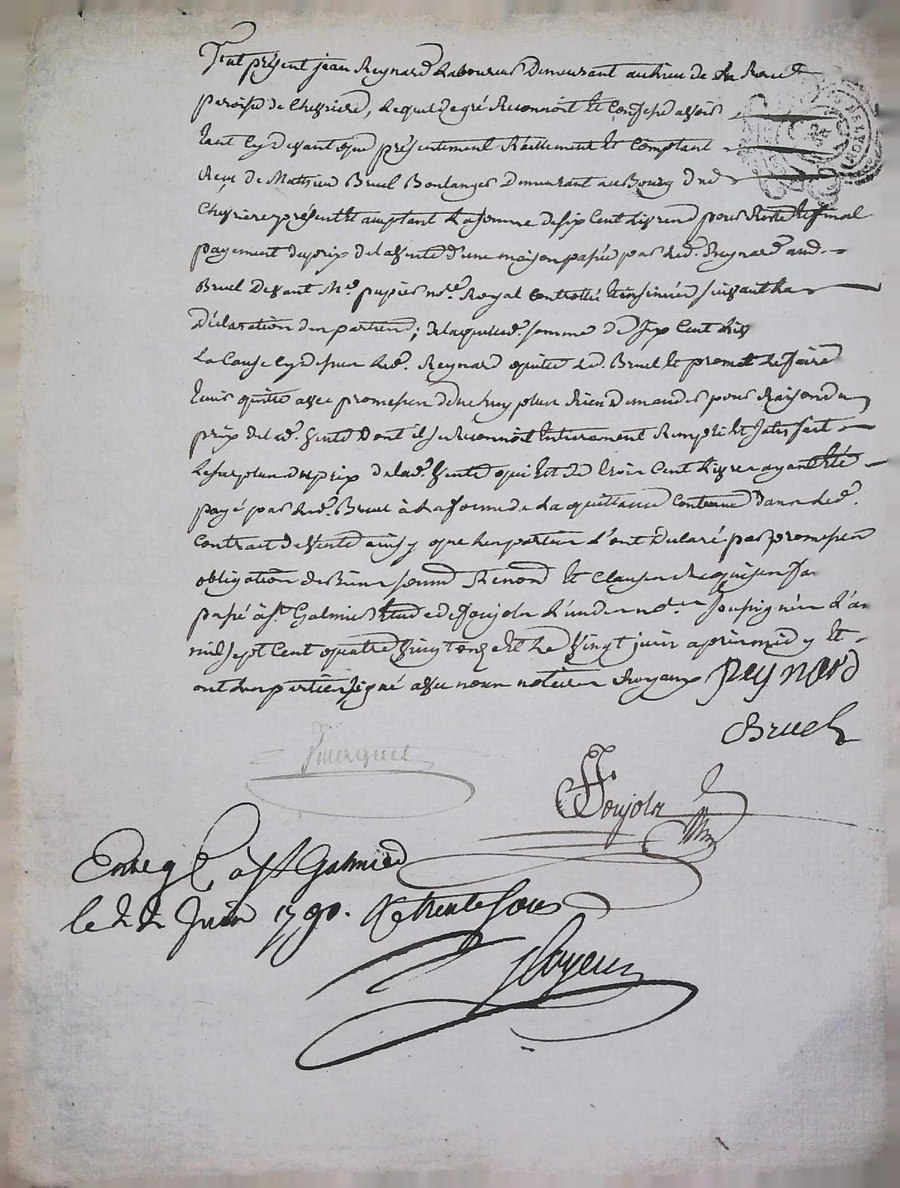 Fut présent jean Reynard Laboureur Demeurant au lieu de la
paroisse de Chevriere, Lequel de gré Reconnoit et Confesse avoir
tant cy devant que présentement Réellement et Comptant
Reçu de Mathieu Bruel Boulanger Demeurant au Bourg dud
Chevriere présent et acceptant La somme de six Cent Livres pour Reste et final
payement du prix de la Vente d'une maison passée par Led. Reynard aud.
Bruel Devant Me. papier nre. Royal Controllé et insinuée suivant La
Déclaration des parties; de laquelle somme de six Cent Liv
La Cause cy dessus Led. Reynard quitte Led. Bruel et promet le faire
tenir quitte avec promesse de ne luy plus Rien Demander pour Raison du
prix de lad. Vente dont il se Reconnoit Entierement Rempli et satisfait
Le surplus du prix de lad. Vente qui est de trois Cent Livres ayant été
payé par Led. Bruel à La forme de La quittance Contenue Dans Led.
Contrat de Vente ainsy que Les parties L'ont Déclaré par promesses
obligation de Biens Soumd Renond et Clauses Requises fai
passé à St. Galmier Etude de Soujola L'un des nores. Soussignés L'an
mil sept Cent quatre Vingt dix et Le Vingt juin après midy et
ont Les parties signé avec nous notaires Royaux Reynard
Bruel
Soujola
Enreg à St Galmier
le 22 Juin 1790. R trente sous